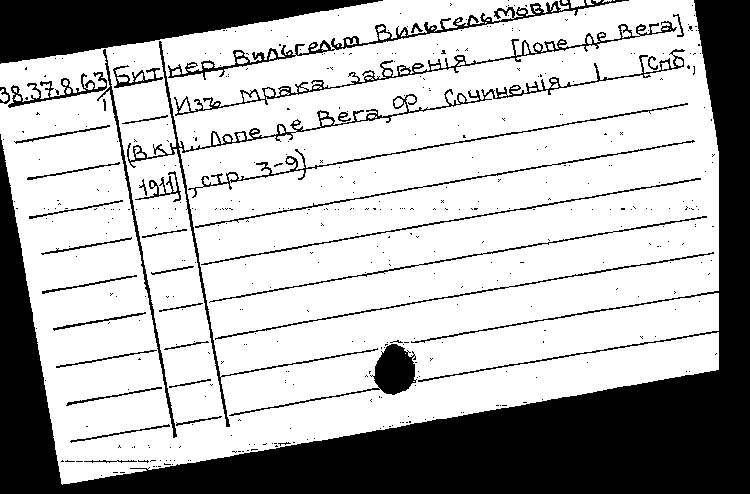 38.37.8.63 Битнер, Вильгельм Вильгельмович,
1 Изъ мрака забвенія. [Лопе де Вега].
(В кн.: Лопе де Вега, Ф. Сочиненія. 1. [Спб.,
1911], стр. 3-9).